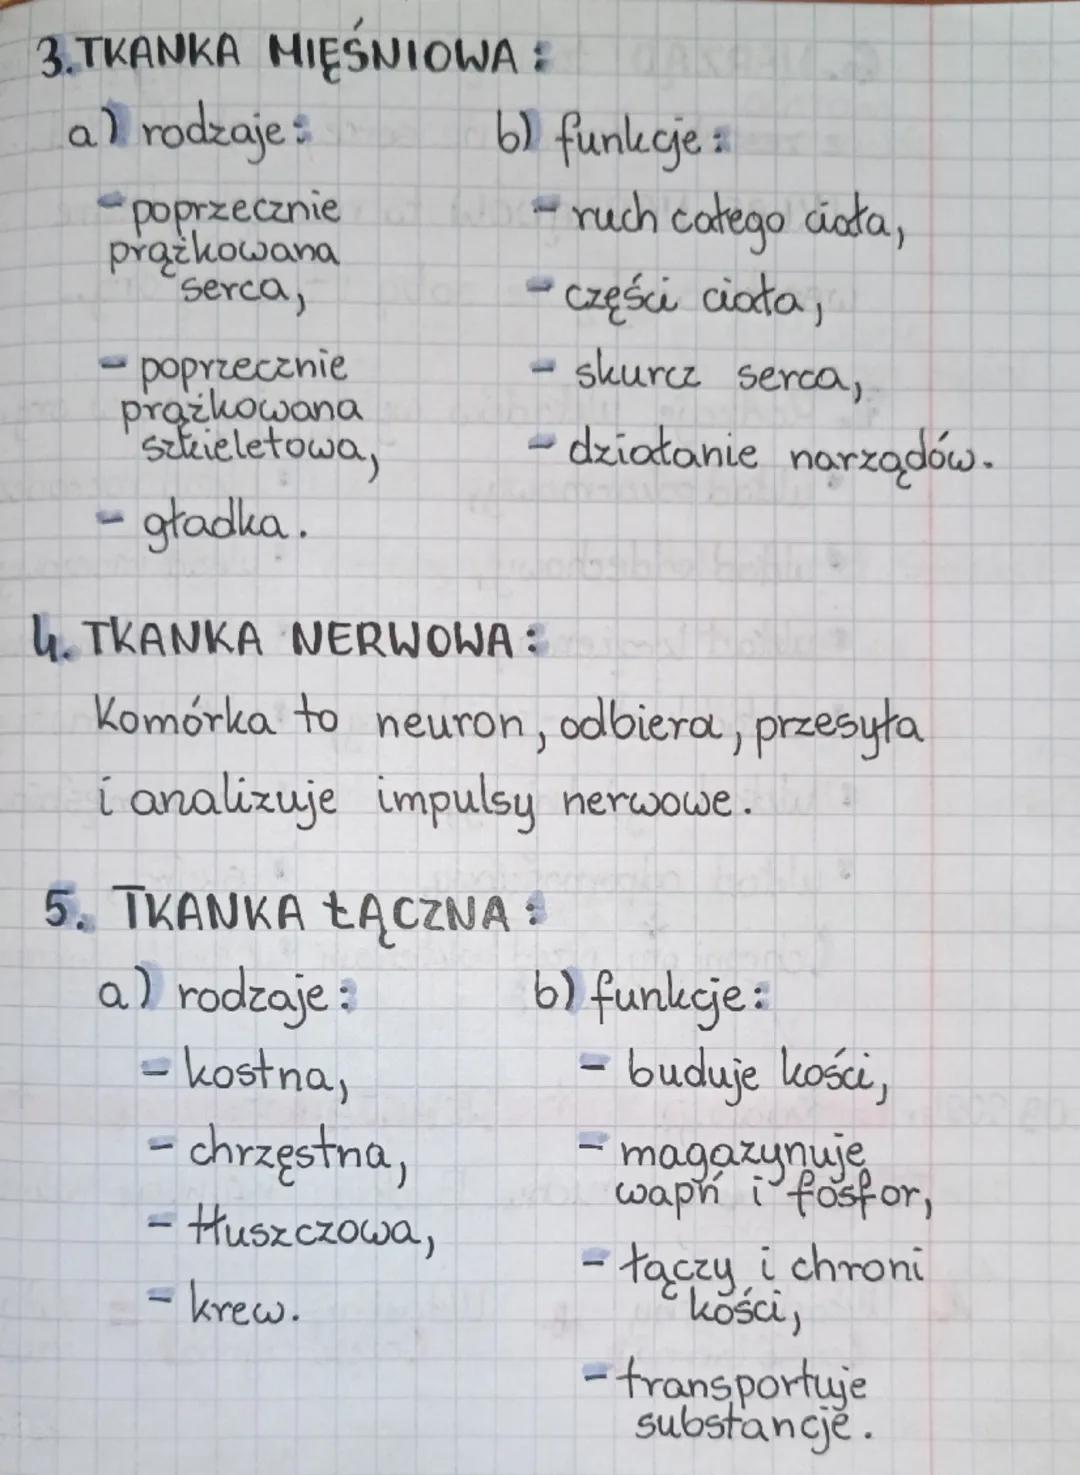 3. TKANKA MIĘŚNIOWA:
a) rodzaje:
- poprzecznie
prążkowana
serca,
- poprzecznie
prążkowana
szkieletowa,
- gładka.
b) funkcje:
- ruch całego ciała,
- części ciała,
- skurcz serca,
- działanie narządów.
4. TKANKA NERWOWA:
Komórka to neuron, odbiera, przesyła
i analizuje impulsy nerwowe.
5. TKANKA ŁĄCZNA:
a) rodzaje:
- kostna,
- chrzęstna,
- tłuszczowa,
- krew.
b) funkcje:
- buduje kości,
- magazynuje
wapń i fosfor,
- łączy i chroni
kości,
- transportuje
substancje.